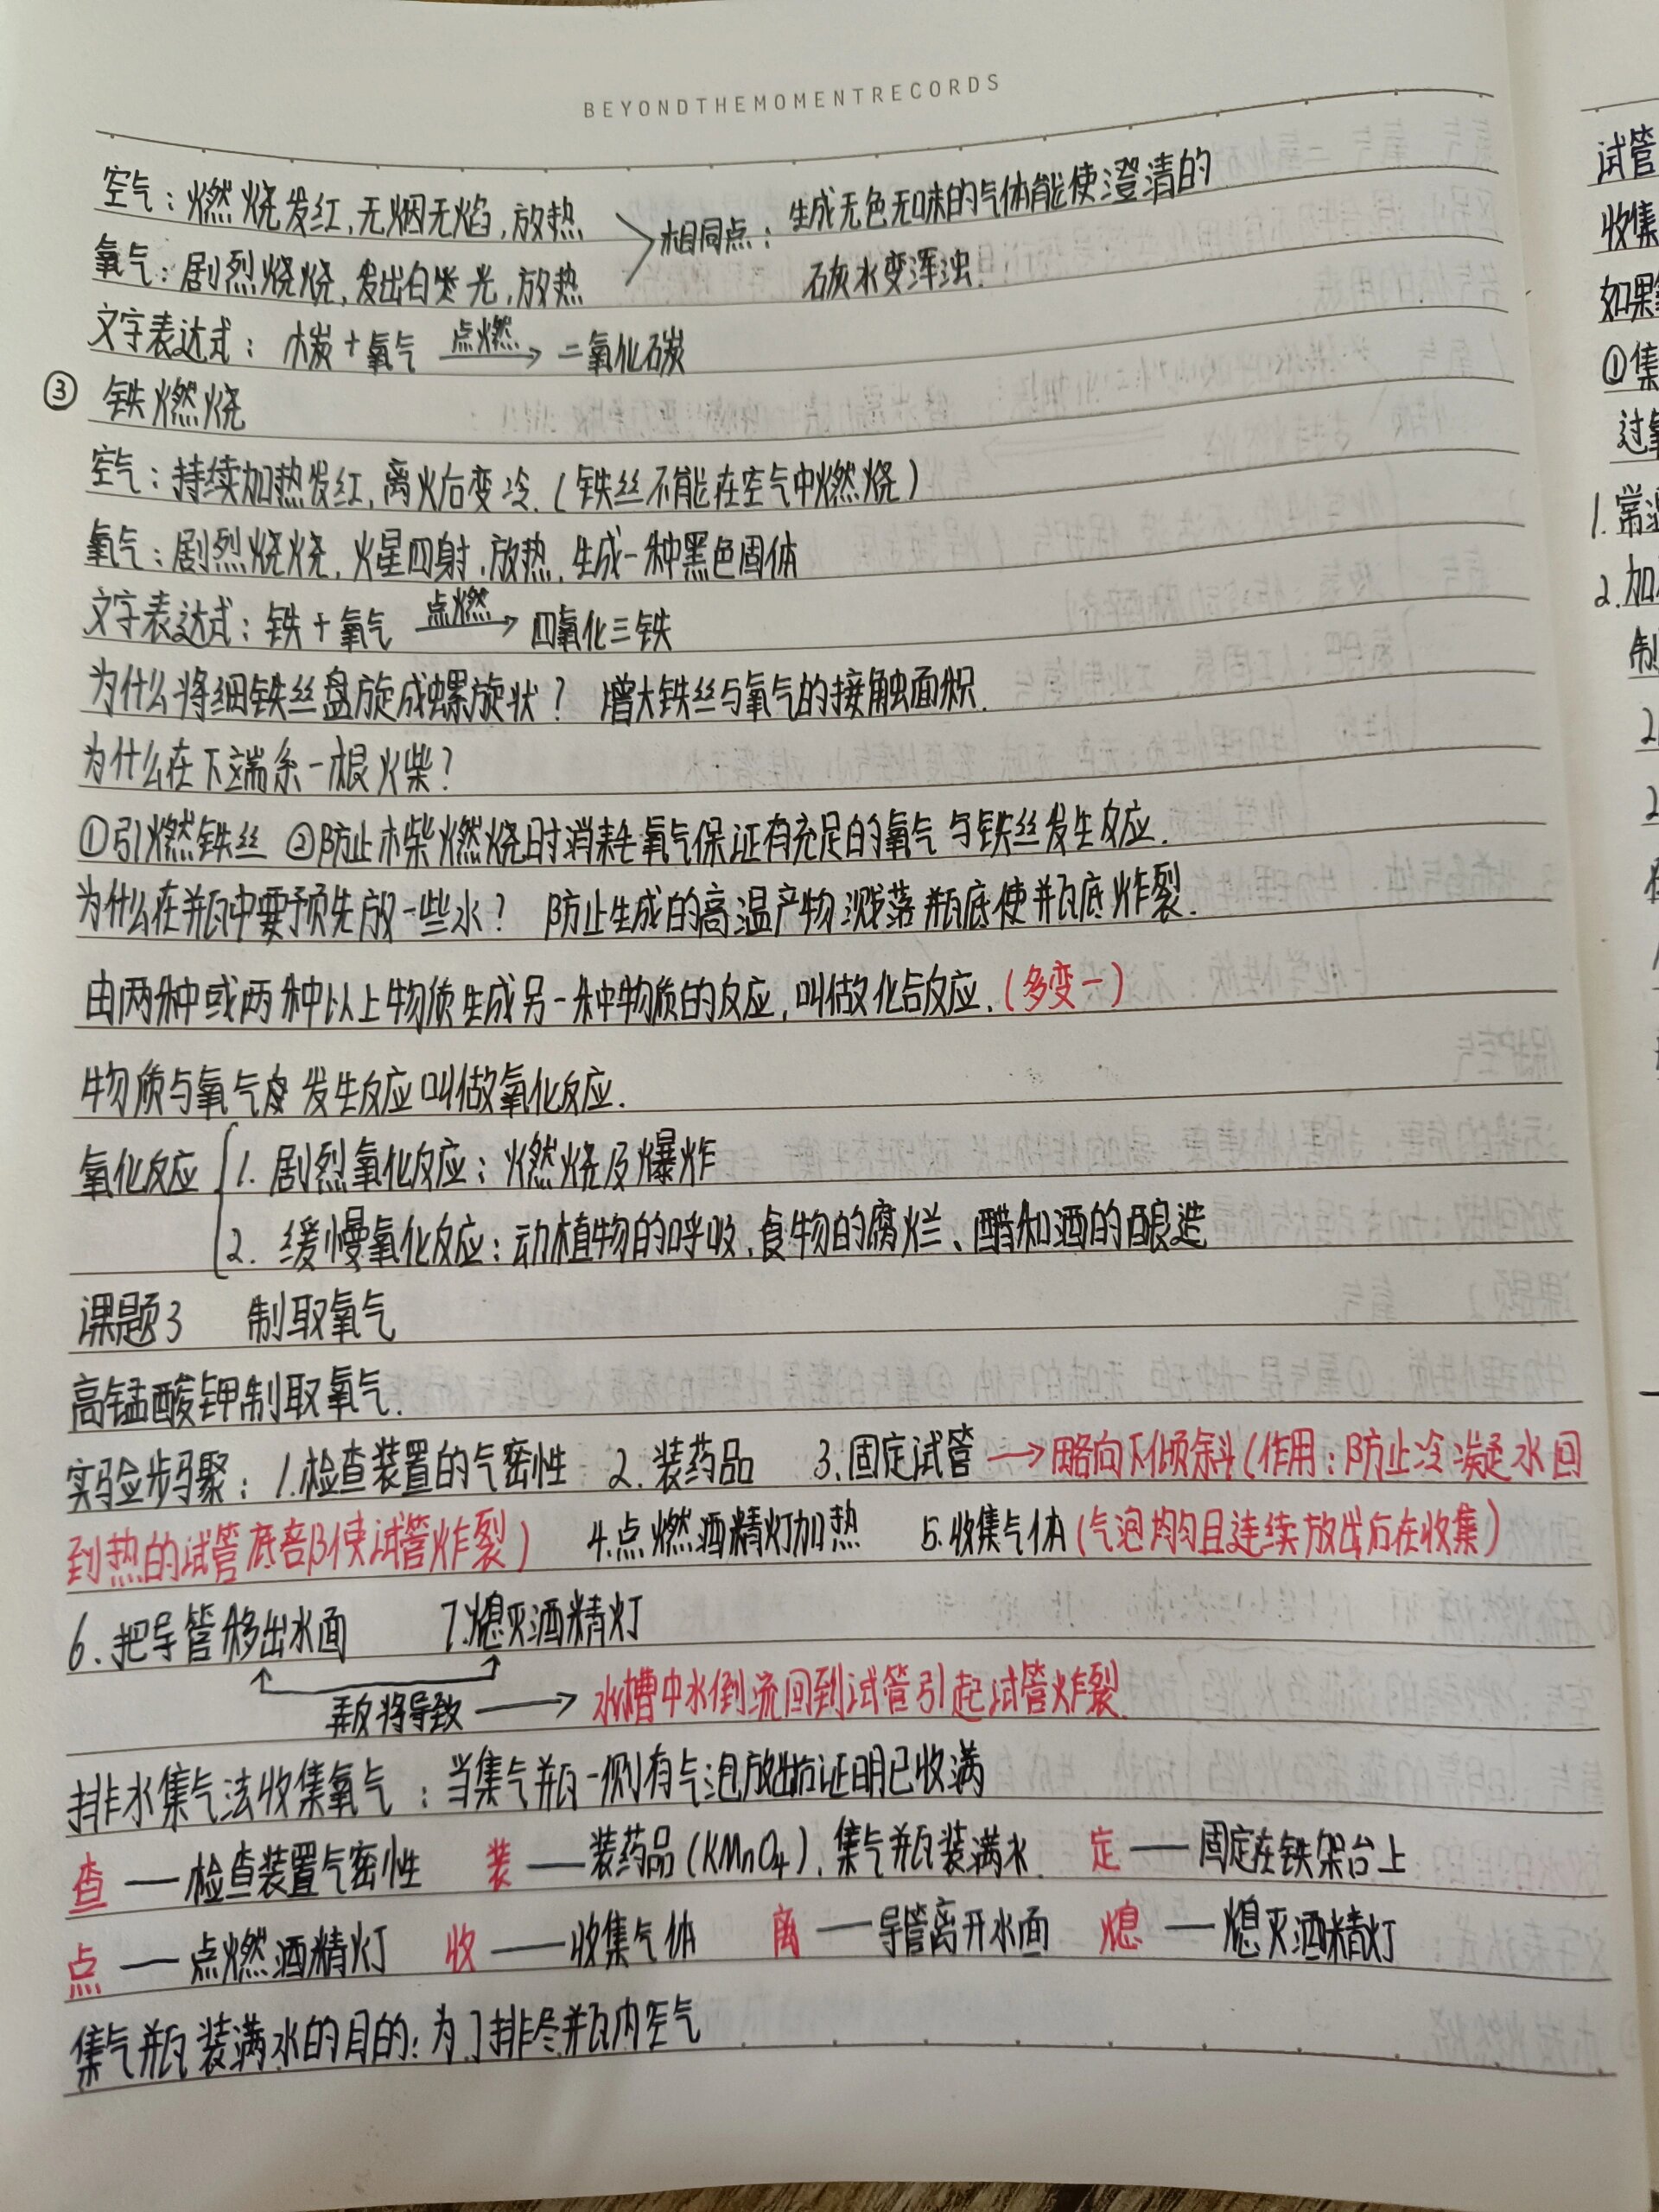 BEYONDTHEMOMENTRECORDS
空气：燃烧发红，无烟无焰，放热
氧气：剧烈烧烧，发出白光，放热
相同点：生成无色无味的气体能使澄清的
石灰水变浑浊．
文字表达式：木炭+氧气 点燃→ 二氧化碳
③ 铁燃烧
空气：持续加热发红，离火后变冷．（铁丝不能在空气中燃烧）
氧气：剧烈烧烧，火星四射，放热，生成一种黑色固体
文字表达式：铁+氧气 点燃→ 四氧化三铁
为什么将细铁丝盘旋成螺旋状？ 增大铁丝与氧气的接触面积．
为什么在下端系一根火柴？
①引燃铁丝 ②防止木柴燃烧时消耗氧气保证有充足的氧气与铁丝发生反应．
为什么在瓶中要预先放一些水？ 防止生成的高温产物溅落瓶底使瓶底炸裂．
由两种或两种以上物质生成另一种物质的反应，叫做化合反应．（多变一）
物质与氧气 发生反应叫做氧化反应．
氧化反应 1. 剧烈氧化反应：燃烧及爆炸
2. 缓慢氧化反应：动植物的呼吸、食物的腐烂、醋和酒的酿造
课题3 制取氧气
高锰酸钾制取氧气．
实验步骤：1.检查装置的气密性 2.装药品 3.固定试管→略向下倾斜（作用：防止冷凝水回
到热的试管底部使试管炸裂） 4.点燃酒精灯加热 5.收集气体（气泡均匀且连续放出后在收集）
6.把导管移出水面 7.熄灭酒精灯
弄反将导致→水槽中水倒流回到试管引起试管炸裂．
排水集气法收集氧气：当集气瓶一侧有气泡放出后证明已收满
查—检查装置气密性 装—装药品(KMnO4)，集气瓶装满水． 定—固定在铁架台上
点—点燃酒精灯 收—收集气体 离—导管离开水面 熄—熄灭酒精灯
集气瓶装满水的目的：为了排尽瓶内空气
试管
收集
如果
①集
过氧
1.常温
2.加
制